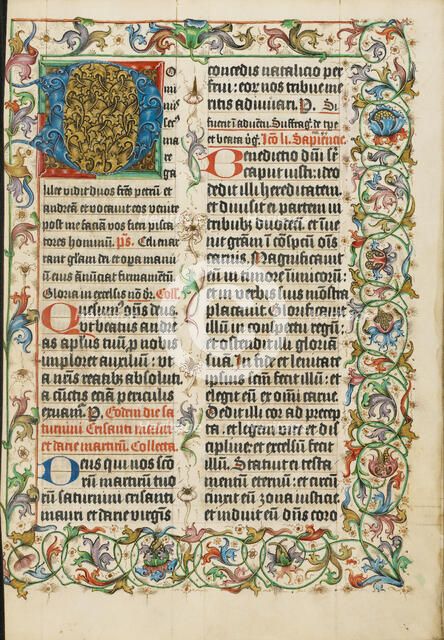 D
Omi
nus
secus
mare
ga
lilee vidit duos fr̄es petrū et
andreā et vocavit eos venite
post me faciā vos fieri pisca
tores hominū. ps. Celi enar
rant gl̄am dei et opa manū
Gloria in excelsis Coll̄.
Quesumus om̄s deus.
vt beatus andre
as apl̄us tuū p nobis
imploret auxiliū: vt
a nr̄is reatib absoluti.
a cūctis etiā periculis
exuam̄. P. Eodem die sa
turnini Crisanti mauri
et darie martirum Collecta.
Deus qui nos sc̄o
rū martirum tuo
rū saturnini crisanti
mauri et darie virgīs
concedis natalicio per
frui: eor nos tribue me
ritis adiuvari. P.
Ic̄o li. Sapiencie.
Benedictio dn̄i sr̄
caput iusti: ideo
dedit illi hereditatem.
et divisit ei partem in
tribub duodecī. et īue
nit grām ī cōspcū om̄s
carnis. Magnificavit
eū in timore inimicorū:
et in verbis suis mōstra
placavit. Glorificavit
illū in conspectu regū:
et ostendit illi gloriā
suā. In fide et lenitate
ipsius scm̄ fecit illū: et
elegit eū ex om̄i carne.
Dedit illi cor ad precep
ta. et legem vite et dis
cipline: et excelsū fecit
illū. Statuit ei testa
mentū eternū: et circū
cinxit eū zona iusticie
et induit eū dn̄s coro